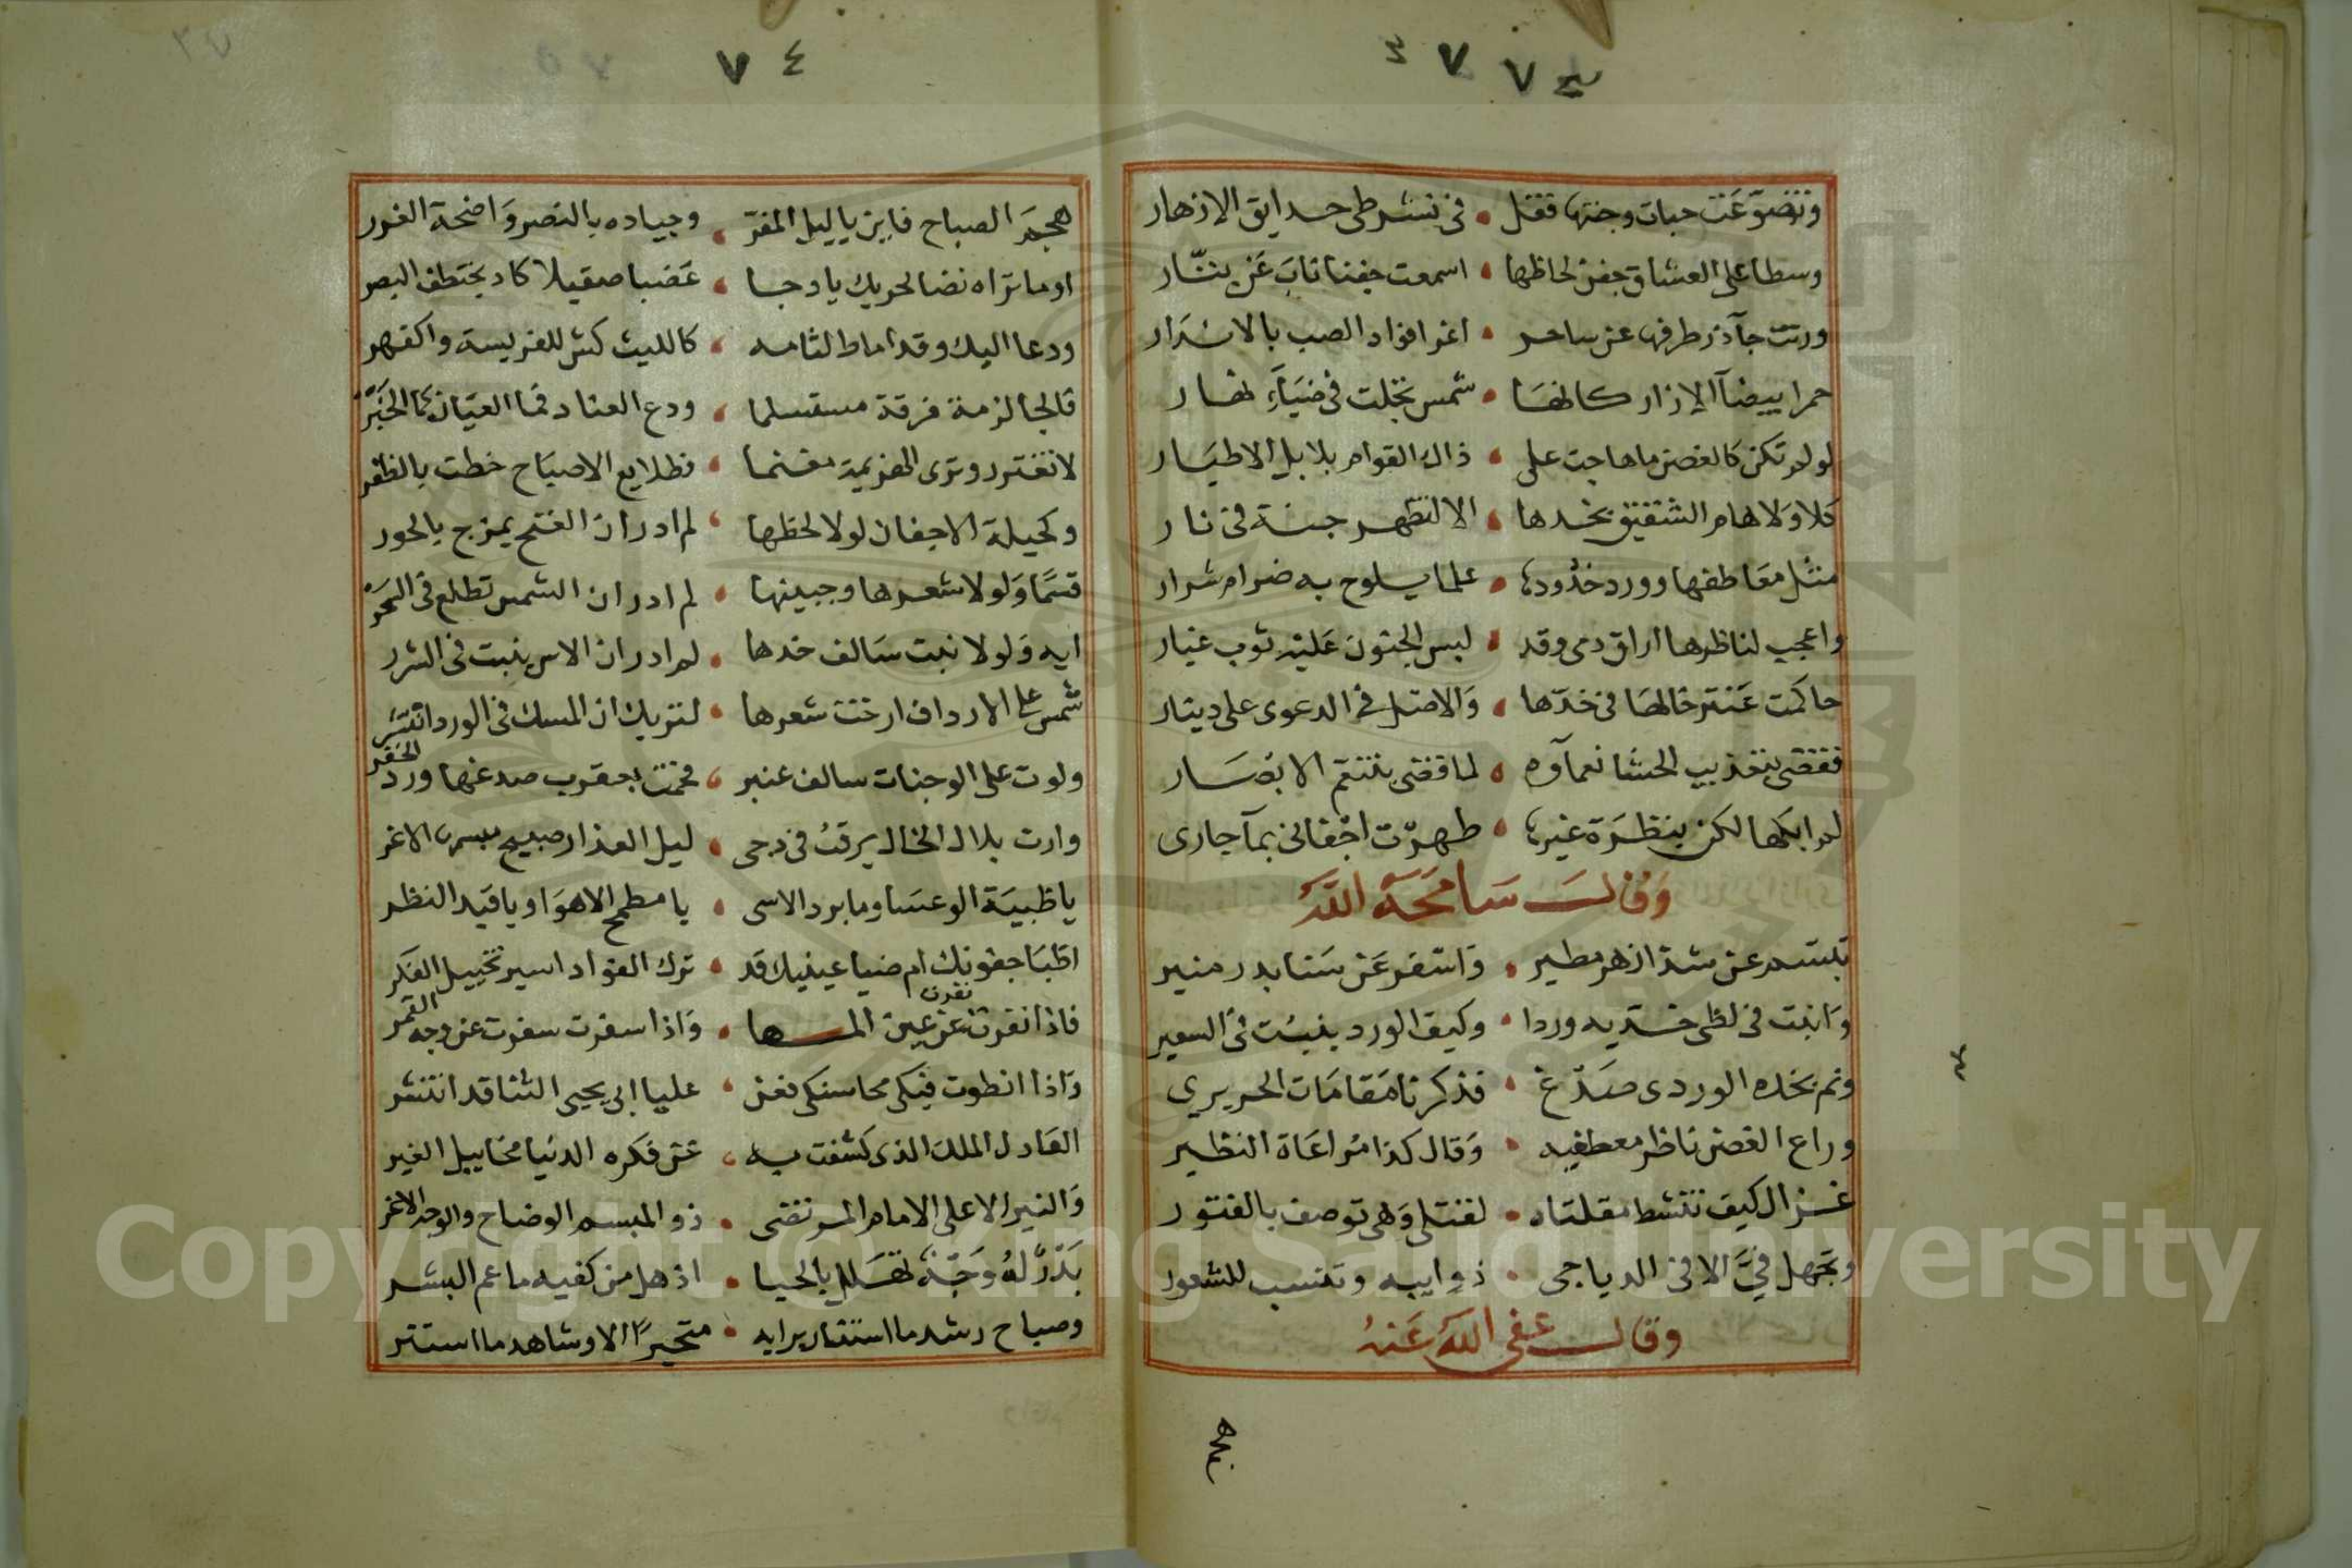 ٣ ٧ ٧ ٣
وتضوعت حبات وجنتها فقل • في نشر طي حدايق الازهار
وسطا على العشاق جفن لحاظها • اسمعت جفنا ناب عن بتار
ورنت جآذر طرفها عن ساحر • اغرا فواد الصب بالاسرار
حمرا بيضآ الازار كانها • شمس تجلت في ضيآء نهار
لو لم تكن كالغصن ما هاجت على • ذاك القوام بلابل الاطيار
كلا ولا هام الشقيق بخدها • الا لتظهر جنة في نار
مثل معاطفها وورد خدودها • علما يلوح به ضرام شرار
واعجب لناظرها اراق دمي وقد • لبس الجنون عليه ثوب غيار
حاكمت عنتر خالها في خدها • والاصل في الدعوى على دينار
فقضى بتعذيب الحشا نعمآوه • لما قضى بتنعم الابصار
لم ابكها لكن بنظرة غيرها • طهرت اجفاني بمآ جاري
وقال سامحه الله
تبسم عن شذا زهر مطير • واسفر عن سنا بدر منير
وانبت في لظى خديه وردا • وكيف الورد ينبت في السعير
ونم بخده الوردى صدغ • فذكرنا مقامات الحريري
وراع الغصن ناظر معطفيه • وقال كذا مراعاة النظير
غزال كيف تنشط مقلتاه • لقتلى وهي توصف بالفتور
وتجهل في الا في الدياجى • ذوايبه وتنسب للشعور
وقال عفى الله عنه
هجم
٧ ٤
هجم الصباح فاين يا ليل المفر • وجياده بالنصر واضحة الغرر
او ما تراه نضا لحربك يا دجا • عضبا صقيلا كاد يختطف البصر
ودعا اليك وقد اماط لثامه • كالليث كش للفريسة واكفهر
فالجا لزمة فرقة مستسلما • ودع العناد فما العيان كما الخبر
لا تغترر وترى الهزيمة مغنما • فطلايع الاصباح خطت بالظفر
وكحيلة الاجفان لولا لحظها • لم ادر ان الفتح يمزج بالحور
قسما ولولا شعرها وجبينها • لم ادر ان الشمس تطلع في السحر
ايه ولولا نبت سالف خدها • لم ادر ان الاس ينبت في الشرر
شمس على الارداف ارخت شعرها • لتريك ان المسك في الورد انتثر
ولوت على الوجنات سالف عنبر • فحمت بعقرب صدغها ورد الخفر
وارت بلال الخال يرقب في دجى • ليل العذار صبيح مبسمها الاغر
يا ظبية الوعسا وما برد الاسى • يا مطمح الاهوا ويا قيد النظر
اظبا جفونك ام ضيا عينيك قد • ترك الفواد اسير تخييل الفكر
فاذا نفرت نفرت عن عين المها • واذا سفرت سفرت عن وجه القمر
واذا انطوت فيكى محاسنكى فعن • عليا ابى يحيى الثنا قد انتشر
العادل الملك الذى كشفت به • عن فكره الدنيا مخاييل الغير
والنير الاعلى الامام المرتضى • ذو المبسم الوضاح والوجه الاغر
بدر له وجه تهلل بالحيا • اذ هل من كفيه ما عم البشر
وصباح رشد ما استنار برايه • متحيرا الا وشاهد ما استتر
Copyright © King Saud University